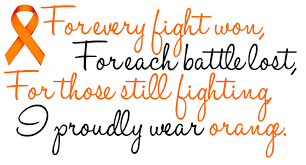 For every fight won,
For each battle lost,
For those still fighting
I proudly wear orange.